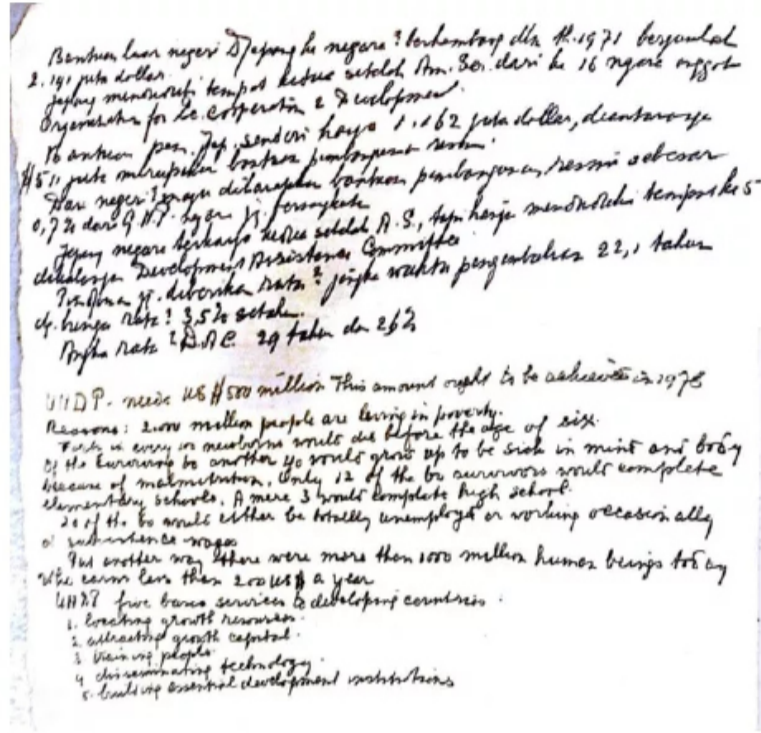 Bantuan luar negeri Djepang ke negara² berkembang dlm th. 1971 berjumlah
2.141 juta dollar.
Jepang menduduki tempat kedua setelah Am. Ser. dari ke 16 negara anggota
Organization for Ec. Cooperation & Development.
Bantuan pem. Jep. sendiri hanya 1.162 juta dollar, diantaranya
$511 juta merupakan bantuan pembangunan resmi.
Dari negeri² maju diharapkan bantuan pembangunan resmi sebesar
0,7% dari G.N.P. negara
Jepang negara terkaya kedua setelah A.S., tapi hanya menduduki tempat ke 5
dikalangan Development Assistance Committee
Pinjaman yg. diberikan rata² jangka waktu pengembalian 22,1 tahun
dg. bunga rata² 3,5% setahun.
Angka rata² D.A.C. 29 tahun dan 2,6%
UNDP. needs US $500 million This amount ought to be achieved in 1978
Reasons: 2.000 million people are living in poverty.
in every 100 newborns would die before the age of six.
Of the surviving 60 another 40 would grow up to be sick in mind and body
because of malnutrition. Only 12 of the 60 survivors would complete
elementary schools. A mere 3 would complete high school.
20 of the 60 would either be totally unemployed or working occasionally
at subsistence wages
Put another way there were more than 1000 million human beings today
who earns less than 200 US$ a year
UNDP five basic services to developing countries.
1. locating growth resources.
2. attracting growth capital.
3. training people.
4. disseminating technology.
5. building essential development institutions